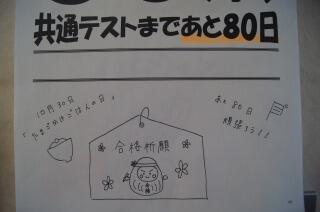 共通テストまであと80日
10月30日
「たまごかけごはんの日」
あと80日
頑張ろう！！
合格祈願
合格